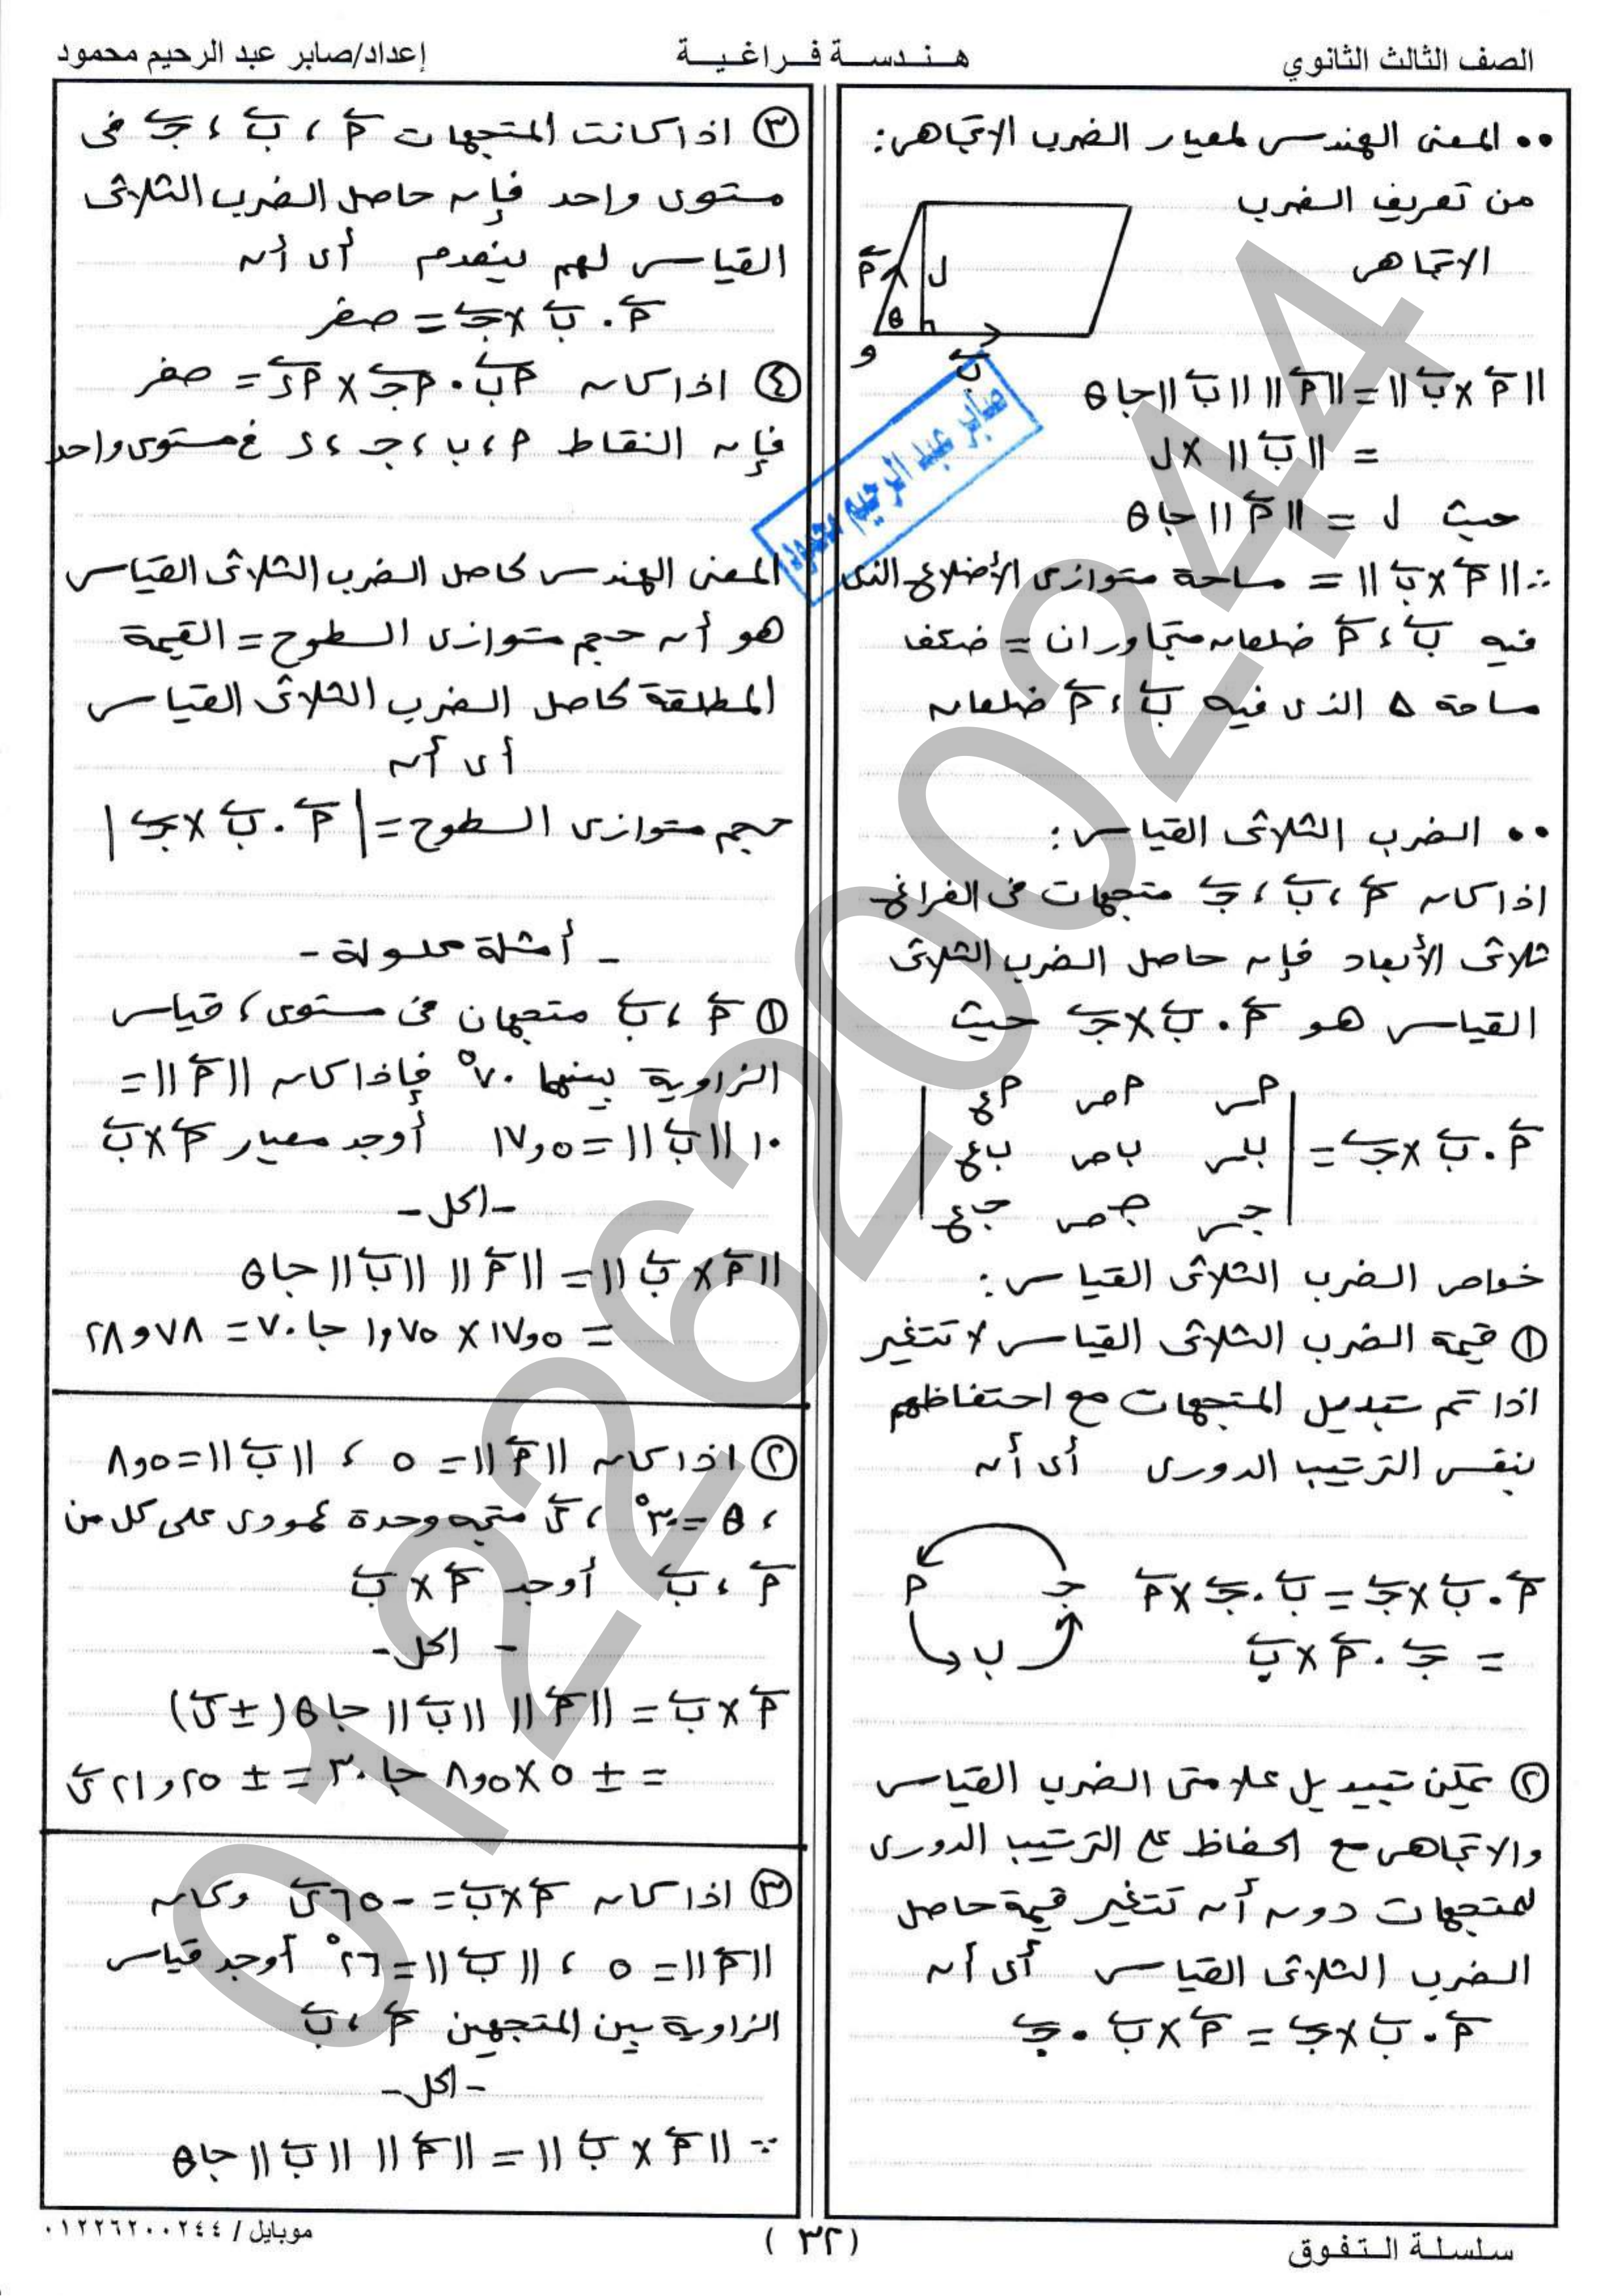 الصف الثالث الثانوي
هـنـدسـة فـراغـيـة
إعداد/صابر عبد الرحيم محمود
•• المعنى الهندسى لمعيار الضرب الاتجاهى:
من تعريف الضرب
الاتجاهى
أ ل
θ
و ب
||أ × ب|| = ||أ|| ||ب|| جا θ
= ||ب|| × ل
حيث ل = ||أ|| جا θ
∴ ||أ × ب|| = مساحة متوازى الأضلاع الذى
فيه ب ، أ ضلعان متجاوران = ضعف
مساحة Δ الذى فيه ب ، أ ضلعان
•• الضرب الثلاثى القياسى:
اذا كان أ ، ب ، جـ متجهات فى الفراغ
ثلاثى الأبعاد فإن حاصل الضرب الثلاثى
القياسى هو أ . ب × جـ حيث
أس أص أع
أ . ب × جـ = | بس بص بع |
جـس جـص جـع
خواص الضرب الثلاثى القياسى:
① قيمة الضرب الثلاثى القياسى لا تتغير
اذا تم تبديل المتجهات مع احتفاظهم
بنفس الترتيب الدورى أى أن
أ . ب × جـ = ب . جـ × أ
= جـ . أ × ب
جـ أ
ب
② يمكن تبديل علامتى الضرب القياسى
والاتجاهى مع الحفاظ على الترتيب الدورى
للمتجهات دون أن تتغير قيمة حاصل
الضرب الثلاثى القياسى أى أن
أ . ب × جـ = أ × ب . جـ
③ اذا كانت المتجهات أ ، ب ، جـ فى
مستوى واحد فإن حاصل الضرب الثلاثى
القياسى لهم ينعدم أى أن
أ . ب × جـ = صفر
④ اذا كان أب . أجـ × أء = صفر
فإن النقاط أ ، ب ، جـ ، ء فى مستوى واحد
صابر عبد الرحيم محمود
المعنى الهندسى لحاصل الضرب الثلاثى القياسى
هو أن حجم متوازى السطوح = القيمة
المطلقة لحاصل الضرب الثلاثى القياسى
أى أن
حجم متوازى السطوح = | أ . ب × جـ |
- أمثلة محلولة -
① أ ، ب متجهان فى مستوى ، قياس
الزاوية بينهما ٧٠° فإذا كان ||أ|| =
١٠ ||ب|| = ١٧,٥ أوجد معيار أ × ب
- الحل -
||أ × ب|| = ||أ|| ||ب|| جا θ
= ١٧,٥ × ١,٧٥ جا ٧٠ = ٢٨,٧٨
② اذا كان ||أ|| = ٥ ، ||ب|| = ٨,٥
، θ = ٣٠° ، ى متجه وحدة عمودى على كل من
أ ، ب أوجد أ × ب
- الحل -
أ × ب = ||أ|| ||ب|| جا θ (± ى)
= ± ٥ × ٨,٥ جا ٣٠ = ± ٢١,٢٥ ى
③ اذا كان أ × ب = - ٦٥ ى وكان
||أ|| = ٥ ، ||ب|| = ٢٦° أوجد قياس
الزاوية بين المتجهين أ ، ب
- الحل -
∵ ||أ × ب|| = ||أ|| ||ب|| جا θ
01226200244
سلسلة التفوق
(٣٢)
موبايل / ٠١٢٢٦٢٠٠٢٤٤